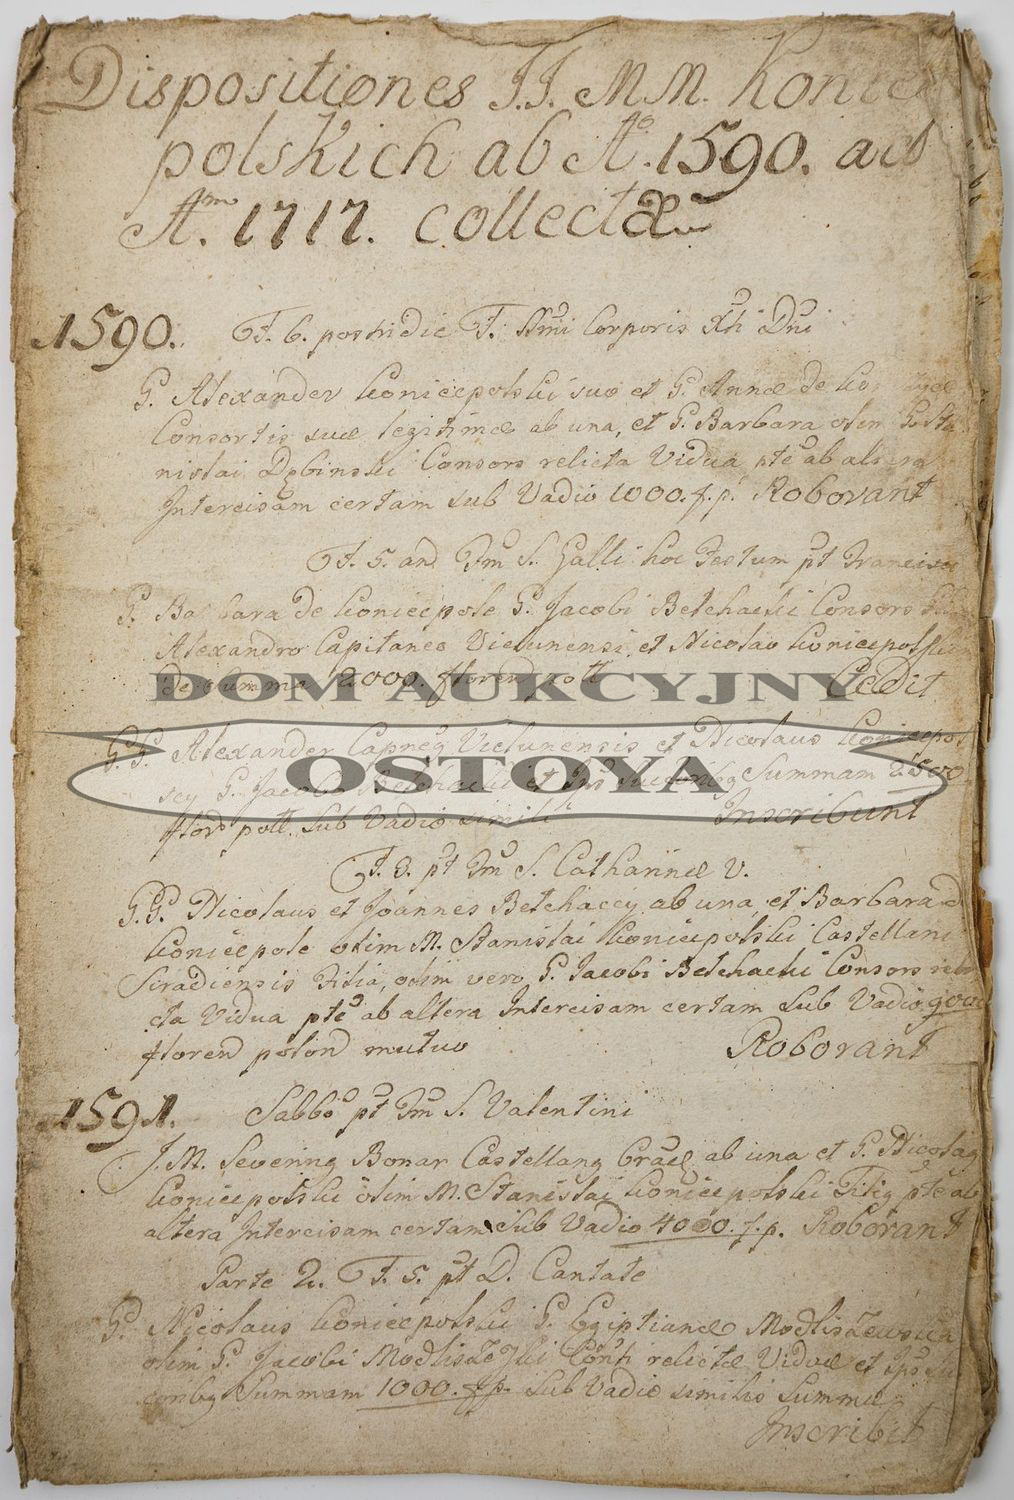 Dispositiones J.J. M.M. Koniec
polskich ab Aº. 1590. ad
Aᵐ. 1717. collectæ
1590. F. 6. postridie F. SSmi Corporis Xti Dni
G. Alexander Koniecpolski suo et G. Annæ de
Consortis suæ legitimæ ab una, et G. Barbara olim
nislai Dębinski Consors relicta Vidua pte ab altera
Intercisam certam sub Vadio 1000. f. p. Roborant
F. 5. an Fm S. Galli hoc Festum pt
G. Barbara de Koniecpole G. Jacobi Betchacki Consors
Alexandro Capitaneo Vielunensi et Nicolao Koniecpolskim
de summa 2000 floren poll Cedit
DOM AUKCYJNY
G.G. Alexander Capneq Vielunensis et Nicolaus Koniecpol
scy G. Jacobo Betchacki et Ips Summam 2500
OSTOYA
flor poll. sub Vadio simili Inscribunt
F. 3. pt Fm S. Catharinæ V.
G.G. Nicolaus et Joannes Betchaccy ab una et Barbara d
Koniecpole olim M. Stanislai Koniecpolski Castellani
Siradiensis Filia, olim vero G. Jacobi Betchacki Consors reli
cta Vidua pte ab altera Intercisam certam sub Vadio
floren polon mutuo Roborant
1591. Sabbo pt Fm S. Valentini
J. M. Severinq Bonar Castellanq Crac ab una et G. Nicolaq
Koniecpolski olim M. Stanislai Koniecpolski Filiq pte ab
altera Intercisam certam sub Vadio 4000. f. p. Roborant
Parte 2. F. 5. pt D. Cantate
G. Nicolaus Koniecpolski G. Egiptianæ Modliszewska
olim G. Jacobi Consti relictæ Viduæ et Ips
conbq Summam 1000. fp. sub Vadio similis Summæ
Inscribit